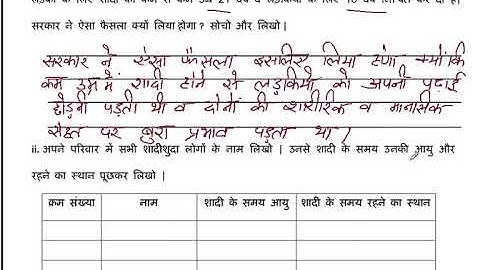 लड़कों के लिए शादी की कम से कम उम्र 21 वर्ष व लड़कियों के लिए 18 वर्ष निश्चित कर दी है।
सरकार ने ऐसा फैसला क्यों लिया होगा ? सोचो और लिखो |
सरकार ने ऐसा फैसला इसलिए लिया होगा क्योंकि
कम उम्र में शादी होने से लड़कियों को अपनी पढ़ाई
छोड़नी पड़ती थी व दोनों की शारीरिक व मानसिक
सेहत पर बुरा प्रभाव पड़ता था।
ii. अपने परिवार में सभी शादीशुदा लोगों के नाम लिखो | उनसे शादी के समय उनकी आयु और
रहने का स्थान पूछकर लिखो |
क्रम संख्या नाम शादी के समय आयु शादी के समय रहने का स्थान